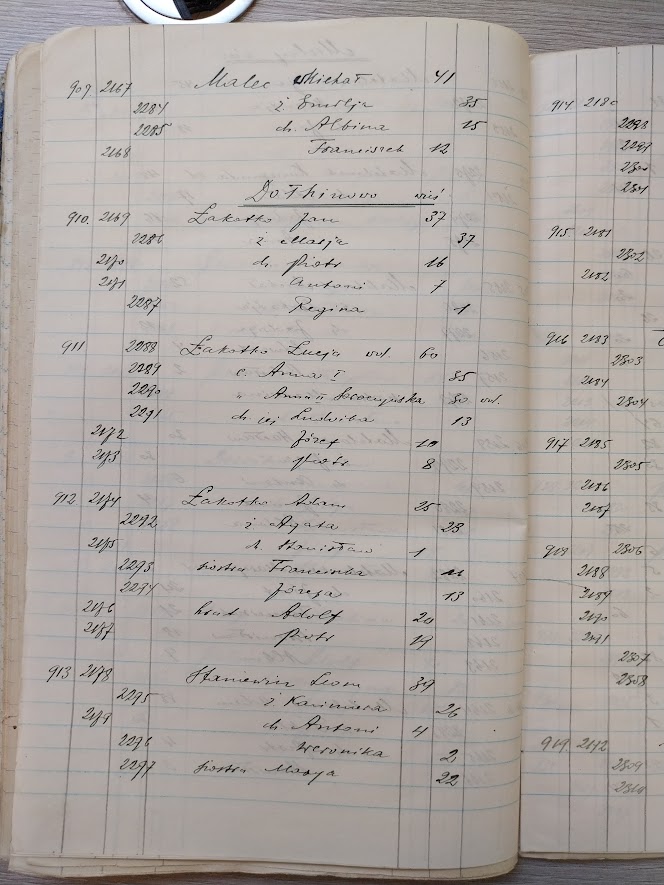 909 2167 Malec Michał 41
2284 ż. Emilja 35
2285 ch. Albina 15
2168 Franciszek 12
Dołhinowo wieś
910. 2169 Łakotko Jan 37
2286 ż Marja 37
2170 ch. Piotr 16
2171 Antoni 7
2287 Regina 1
911 2288 Łakotko Łucja wd. 60
2289 c. Anna I 35
2290 " Anna II 30 wd.
2291 ch. jej Ludwika 13
2172 Józef 10
2173 Piotr 8
912 2174 Łakotko Adam 25
2292 ż Agata 23
2175 ch. Stanisław 1
2293 siostra Franciszka 11
2294 Józefa 13
2176 brat Adolf 20
2177 Piotr 19
913 2178 Staniewicz Leon 39
2295 ż Kazimiera 26
2179 ch. Antoni 4
2296 Weronika 2
2297 siostra Marja 22
914 2180
2298
2299
2300
2301
915. 2181
2302
2182
916 2183
2303
2184
2304
917 2185
2305
2186
2187
918 2306
2188
2189
2190
2191
2307
2308
919 2192
2309
2310